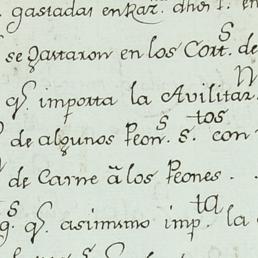 gastadas en Raz.ⁿ dhos
se gastaron en los Cort.ˢ de
q.ᵉ importa la Avilitaz.ⁿ
de algunos Peon.ˢ s.ᵗᵒˢ con
de Carne â los Peones.
g.ˢ q.ᵉ asimismo imp.ᵗᵃ la